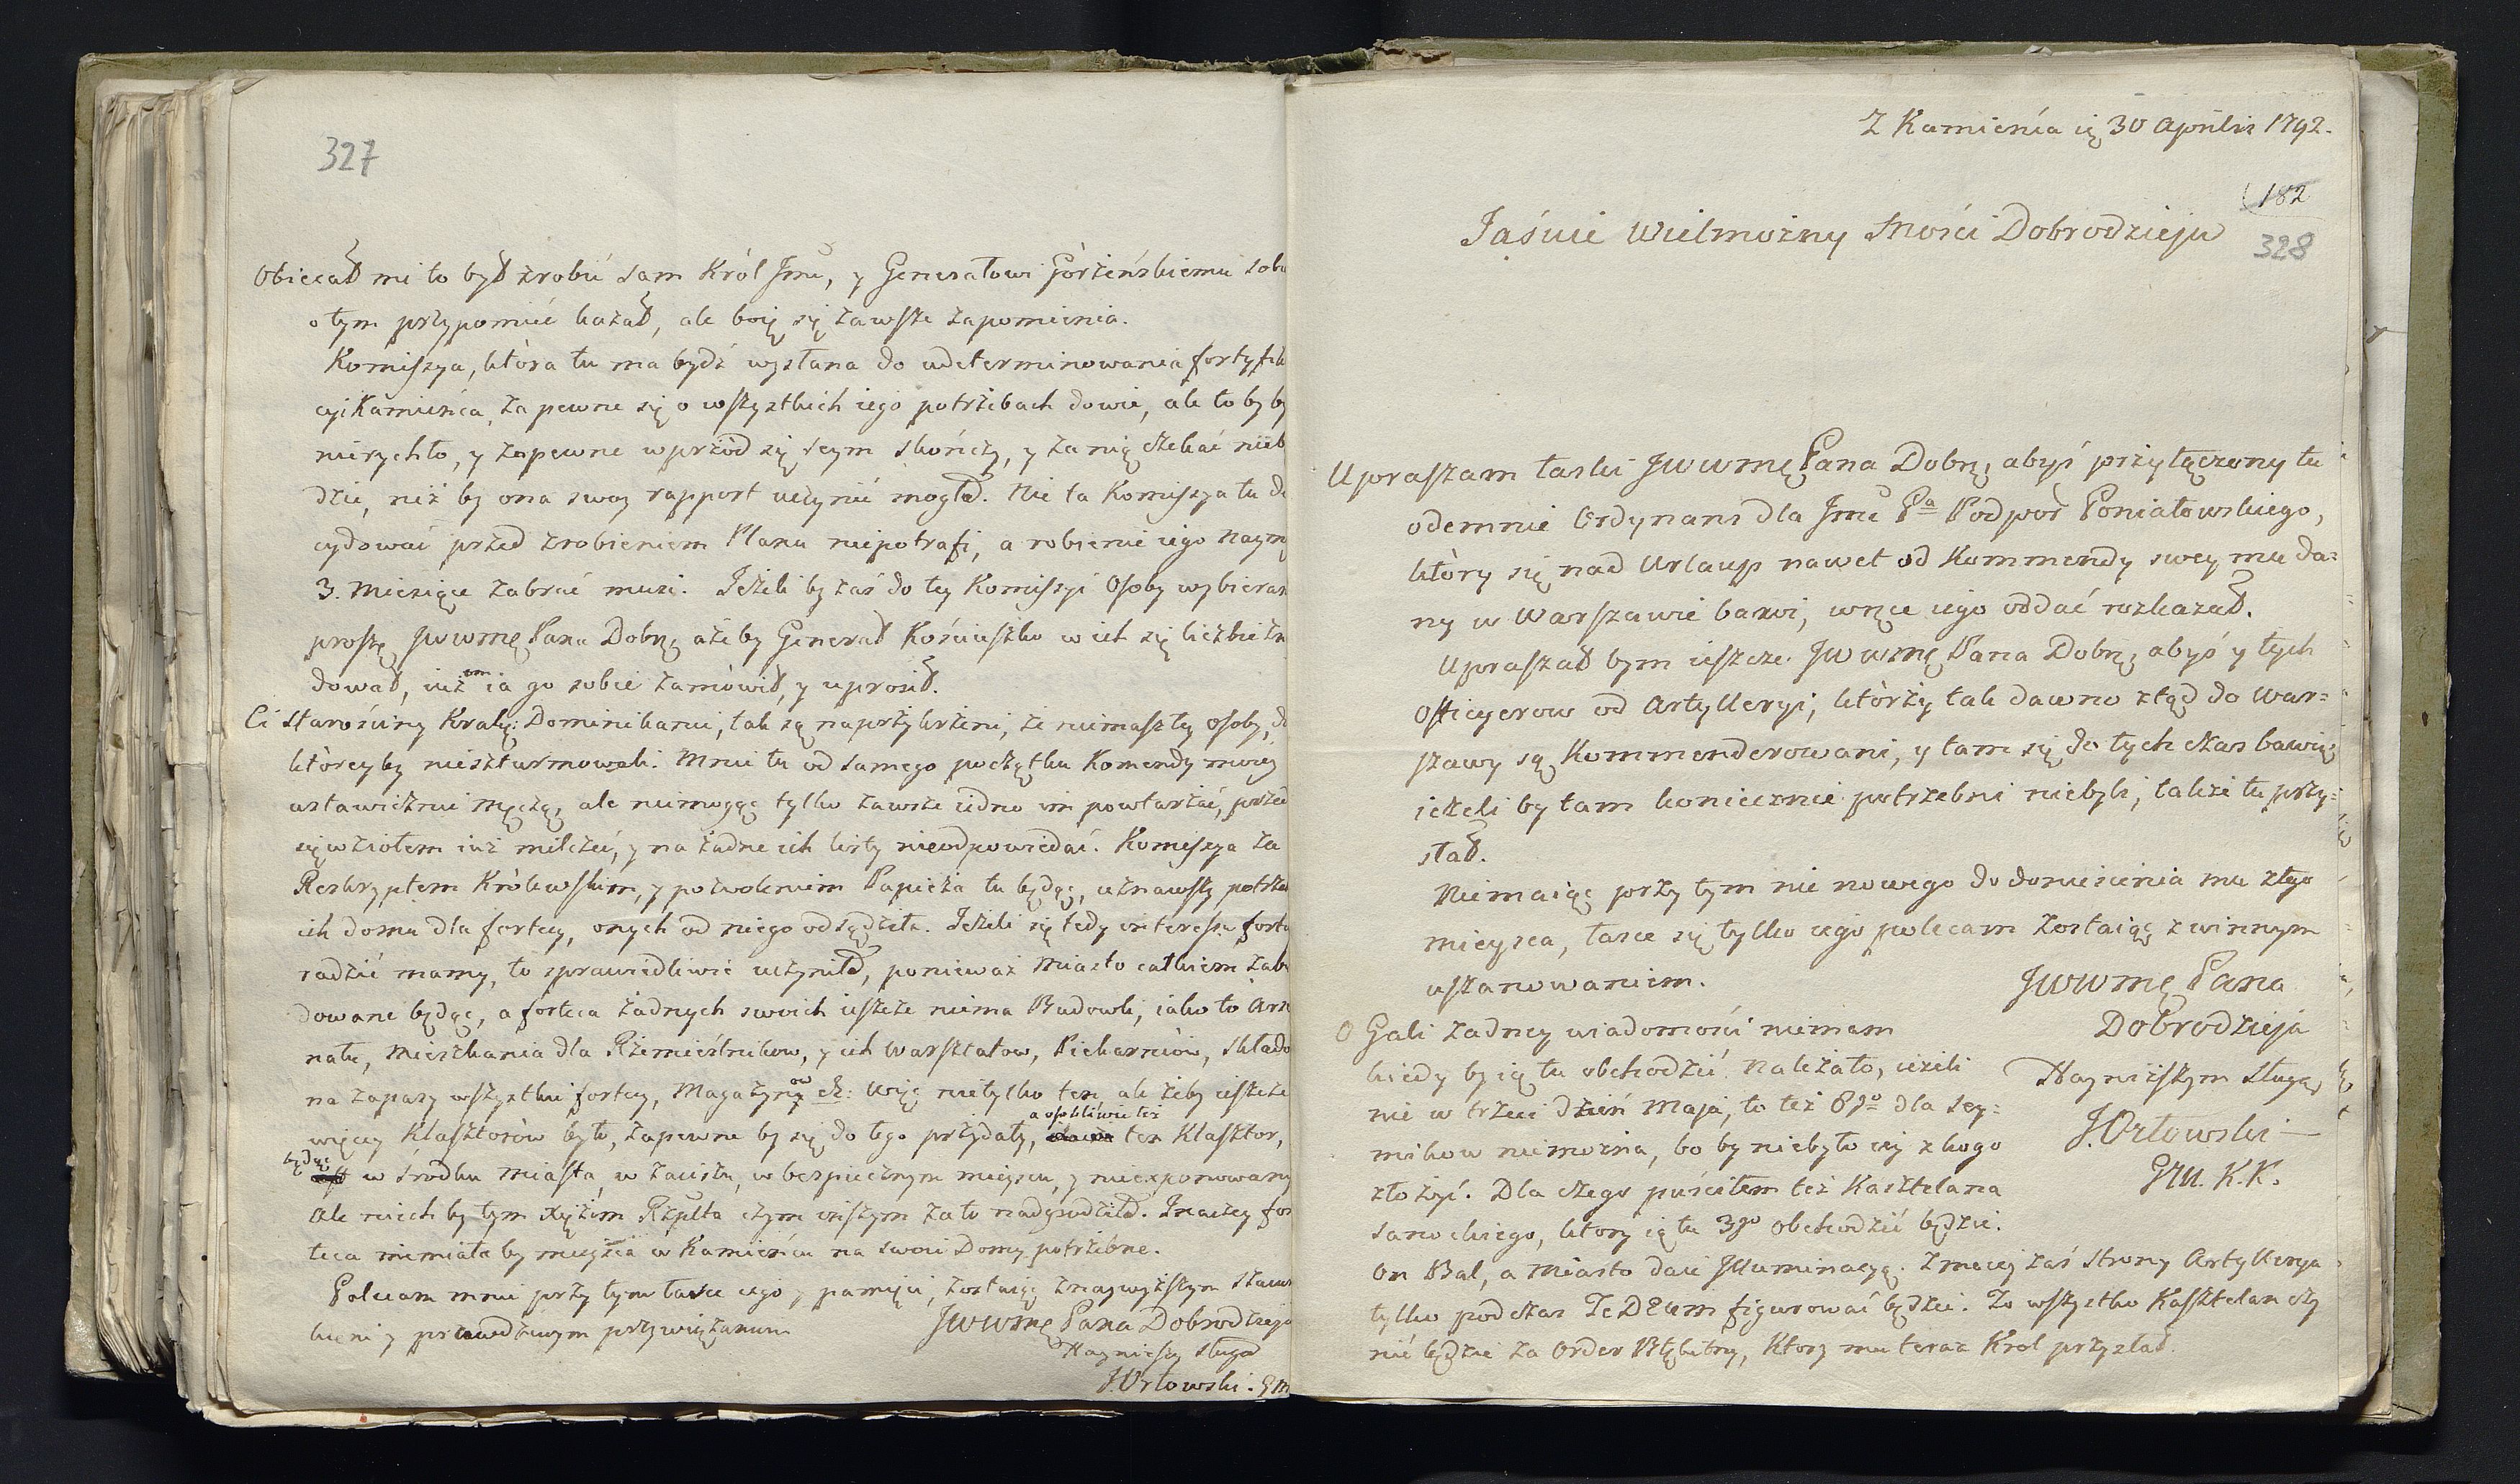 327
Obiecał mi to był zrobić sam Król Jmć, y Generałowi Górżeńskiemu sobi
o tym przypomić kazał, ale boię się zawsze zapomienia.
Komiszya, która tu ma bydź wysłana do udeterminowania fortyfik
cyi Kamieńca zapewne się o wszystkich iego potrzebach dowie, ale to by by
nierychło, y zapewne wprzód się seym skończy, y za nią czekać nieb
dzie, niż by ona swoy rapport uczynić mogła. Nie ta Komiszya tu de
cydować przed zrobieniem Planu niepotrafi, a robienie iego naym
3. Miesiące zabrać musi. Jeżeli by zaś do tey Komiszyi Osoby wybieran
proszę JWWMę Pana Dobrę, ażeby Generał Kościuszko w ich się liczbie zn
dował, iuż em ia go sobie zamówił, y uprosił.
Ci Starościny Kralę: Dominikanie, tak są naprzykrzeni, że niemasz tey osoby, do
którey by nieszturmowali. Mnie tu od samego początku Komendy moiey
ustawicznie męczą, ale niemogąc tylko zawsze iedno im powtarzać, przed
sięwziołem iuż milczeć, y na żadne ich listy nieodpowiedać. Komiszya za
Reskryptem Królewskim, y pozwoleniem Papieża tu będąc, uznawszy potrze
ich domu dla fortecy, onych od niego odsądziła. Jeżeli się tedy interesu forte
radzić mamy, to sprawiedliwie uczyniła, ponieważ Miasto całkiem zabu
dowane będąc, a forteca żadnych swoich ieszcze niema Budowli, iako to Arse
nału, Mieszkania dla Rzemieślnikow, y ich Warsztatow, Piekarniów, Składo
na zapasy wszystkie fortecy, Magazynow etc: Więc nietylko ten, ale żeby ieszcze
więcey Klasztorów było, zapewne by się do tego przydały, a osobliwie też ten Klasztor,
będąc w środku miasta, w zaciszu, w bezpiecznym mieyscu, y nieexponowany
Ale niech by tym Xiężom Rzplta czym inszym za to nadgrodziła. Inaczey for
teca niemiała by mieysca w Kamieńcu na swoie Domy potrzebne.
Polecam mnie przy tym łasce iego y pamięci, zostaiąc z naywyższym szacun
kiem y prawdziwym przywiązaniem
JWWMę Pana Dobrodzieja
Nayniższy sługa
J. Orłowski. GM
Z Kamieńca ię 30 Aprilis 1792.
182
328
Jaśnie Wielmożny Mości Dobrodzieju
Upraszam łaski JWWMę Pana Dobrę, abyś przyłączony tu
odemnie Ordynans dla Jmć Pa Podpoł Poniatowskiego,
który się nad Urlaup nawet od Kommendy swey mu da=
ny w Warszawie bawi, wręce iego oddać rozkazał.
Upraszał bym ieszcze JWWMę Pana Dobrę, abyś y tych
Officyerow od Artylleryi, którzy tak dawno ztąd do War=
szawy są Kommenderowani, y tam się do tych czas bawią
ieżeli by tam koniecznie potrzebni niebyli, także tu przy=
słał.
Niemaiąc przy tym nic nowego do doniesienia mu z tego
mieysca, łasce się tylko iego polecam zostaiąc z winnym
uszanowaniem.
JWWMę Pana
Dobrodzieja
Nayniższym sługą
J. Orłowski
GM. K.K.
O Gali żadney wiadomości niemam
kiedy by ią tu obchodzić należało, ieżeli
nie w trzeci dzień Maja, to też 8go dla sey=
mikow niemożna, bo by niebyło iey z kogo
złożyć. Dla czego puściłem też Kasztelana
Sanockiego, ktory ią tu 3go obchodzić będzie.
On Bal, a Miasto daie Jlluminacyą. Zmoiey zaś strony Artyllerya
tylko podczas TeDEum figurować będzie. To wszystko Kasztelan czy
nić będzie za Order Błękitny, Ktory mu teraz Krol przysłał.